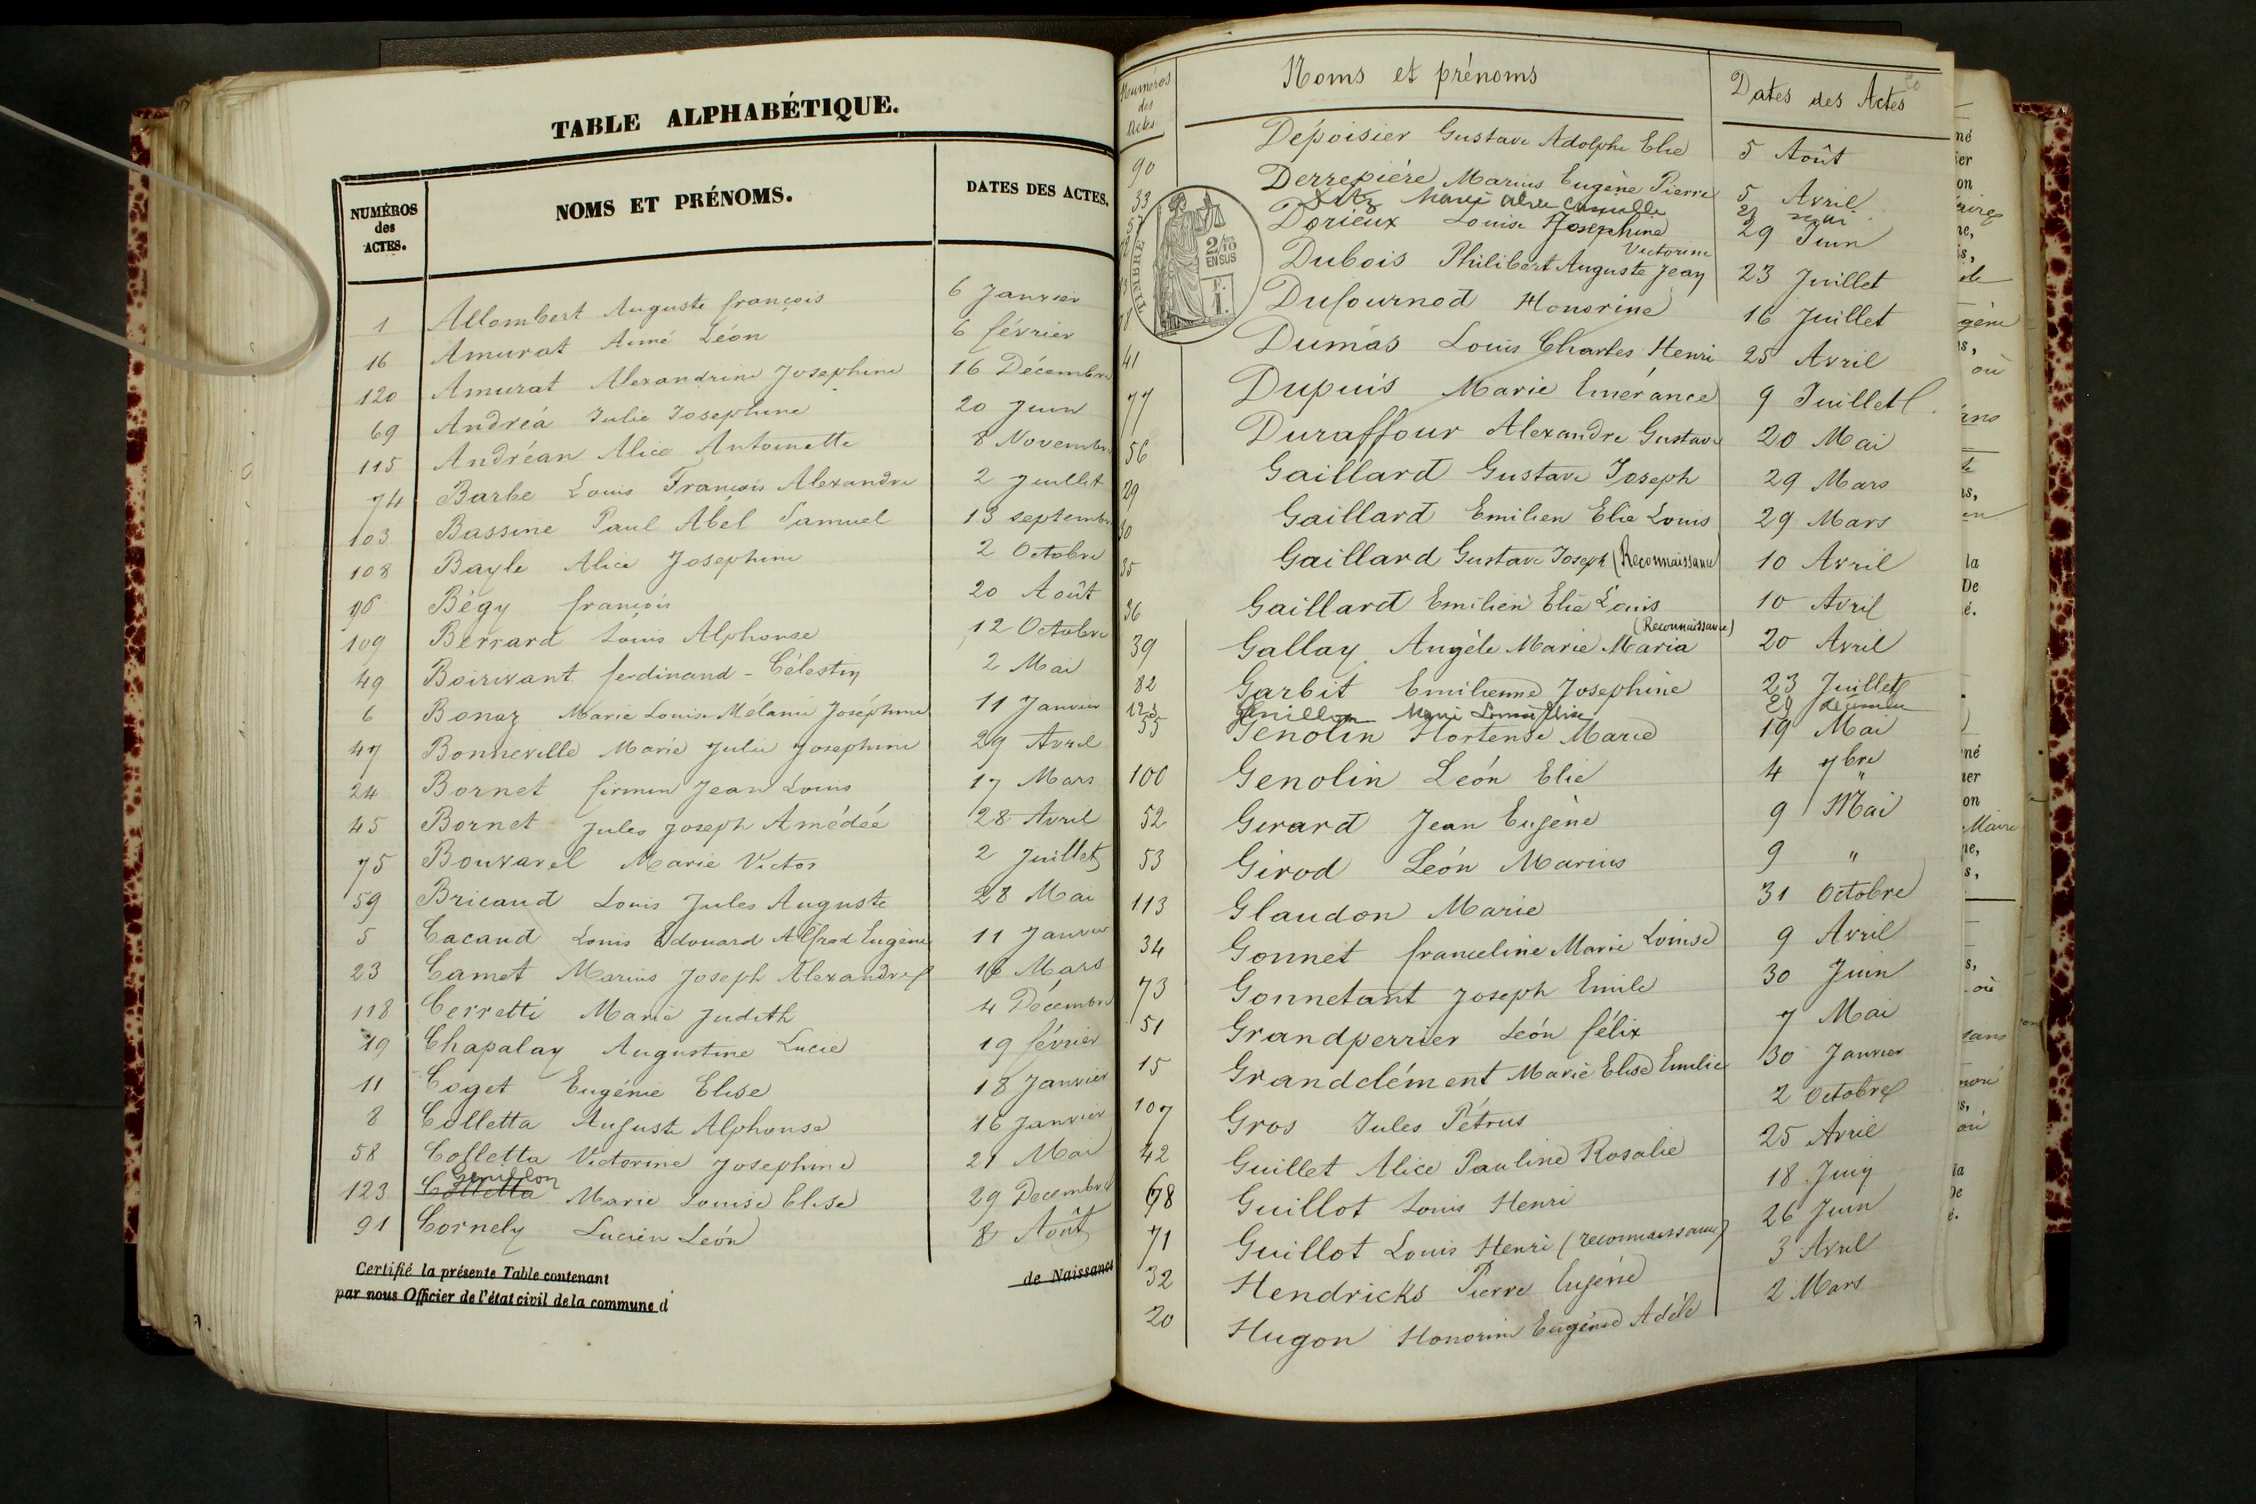 TABLE ALPHABÉTIQUE.
NUMÉROS des ACTES. NOMS ET PRÉNOMS. DATES DES ACTES.
1 Allombert Auguste françois 6 Janvier
16 Amurat Aimé Léon 6 février
120 Amurat Alexandrine Josephine 16 Décembre
69 Andréa Julie Josephine 20 Juin
115 Andréan Alice Antoinette 8 Novembre
74 Barbe Louis François Alexandre 2 Juillet
103 Bassine Paul Abel Samuel 13 septembre
108 Bayle Alice Josephine 2 Octobre
96 Bégy françois 20 Août
109 Berrard Louis Alphonse 12 Octobre
49 Boirivant ferdinand - Célestin 2 Mai
6 Bonaz Marie Louise Mélanie Joséphine 11 Janvier
47 Bonneville Marie Julie Josephine 29 Avril
24 Bornet firmin Jean Louis 17 Mars
45 Bornet Jules Joseph Amédée 28 Avril
75 Bouvarel Marie Victor 2 Juillet
59 Bricaud Louis Jules Auguste 28 Mai
5 Cacaud Louis Edouard Alfred Eugène 11 Janvier
23 Camet Marius Joseph Alexandre 16 Mars
118 Cerretti Marie Judith 4 Décembre
19 Chapalay Augustine Lucie 19 février
11 Coget Eugénie Elise 18 Janvier
8 Colletta Auguste Alphonse 16 Janvier
58 Colletta Victorine Josephine 21 Mai
Genillon
123 Colletta Marie Louise Elise 29 Decembre
91 Cornely Lucien Léon 8 Août
Certifié la présente Table contenant de Naissance
par nous Officier de l'état civil de la commune d
Numéros des Actes Noms et prénoms Dates des Actes
90 Dépoisier Gustave Adolphe Elie 5 Août
33 Derrepiére Marius Eugène Pierre 5 Avril
57 Marie Camille 21 mai
Dorieux Louise Josephine 29 Juin
Victorine
Dubois Philibert Auguste Jean 23 Juillet
TIMBRE 2/10 EN SUS F. 1.
Dufournod Honorine 16 Juillet
41 Dumas Louis Charles Henri 25 Avril
77 Dupuis Marie Emérance 9 Juillet
56 Duraffour Alexandre Gustave 20 Mai
29 Gaillard Gustave Joseph 29 Mars
30 Gaillard Emilien Elie Louis 29 Mars
35 Gaillard Gustave Joseph (Reconnaissance) 10 Avril
36 Gaillard Emilien Elie Louis 10 Avril
(Reconnaissance)
39 Gallay Angèle Marie Maria 20 Avril
82 Garbit Emilienne Josephine 23 Juillet
123 Genillon Marie Louise Elise 29 décembre
55 Genolin Hortense Marie 19 Mai
100 Genolin Léon Elie 4 7bre
52 Girard Jean Eugène 9 Mai
53 Girod Léon Marius 9 "
113 Glaudon Marie 31 Octobre
34 Gonnet franceline Marie Louise 9 Avril
73 Gonnetant Joseph Emile 30 Juin
51 Grandperrier Léon félix 7 Mai
15 Grandclément Marie Elise Emilie 30 Janvier
107 Gros Jules Pétrus 2 Octobre
42 Guillet Alice Pauline Rosalie 25 Avril
68 Guillot Louis Henri 18 Juin
71 Guillot Louis Henri (reconnaissance) 26 Juin
32 Hendricks Pierre Eugène 3 Avril
20 Hugon Honorine Eugénie Adèle 2 Mars